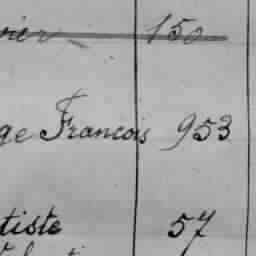 150
ge Francois 953
tiste 57